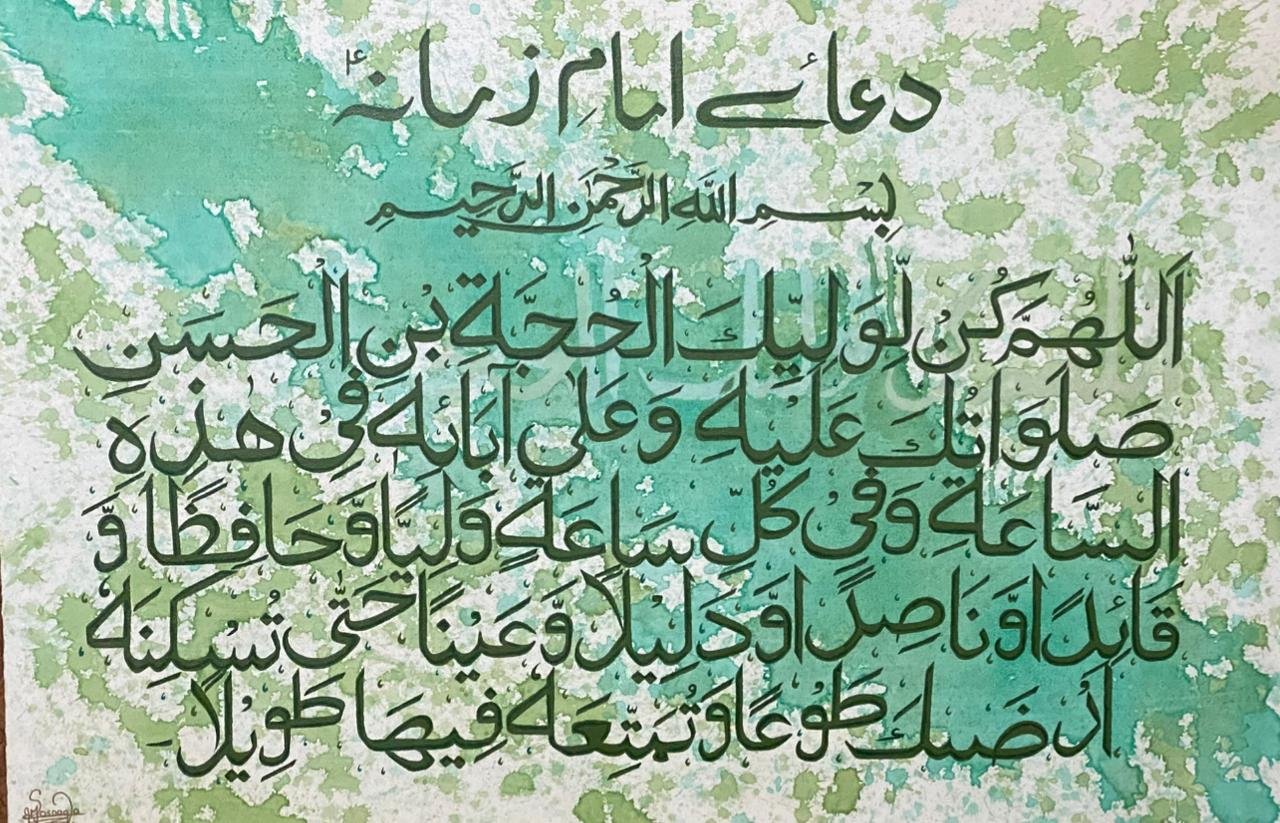 دعائے امام زمانہؑ
بِسْمِ اللهِ الرَّحْمٰنِ الرَّحِيمِ
اَللّٰهُمَّ كُنْ لِّوَلِيِّكَ الْحُجَّةِ بْنِ الْحَسَنِ
صَلَوَاتُكَ عَلَيْهِ وَعَلٰى آبَائِهِ فِيْ هٰذِهِ
السَّاعَةِ وَفِيْ كُلِّ سَاعَةٍ وَلِيًّا وَّحَافِظًا وَّ
قَائِدًا وَّنَاصِرًا وَّدَلِيْلًا وَّعَيْنًا حَتّٰى تُسْكِنَهُ
اَرْضَكَ طَوْعًا وَتُمَتِّعَهُ فِيهَا طَوِيلًا